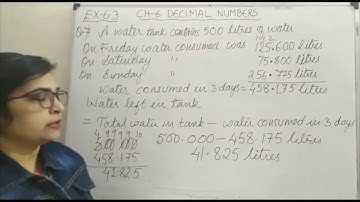 EX-6.3 CH-6 DECIMAL NUMBERS
Q-7) A water tank contains 500 litres of water
On Friday water consumed was 125.600 litres
On Saturday " 75.800 litres
On Sunday " 256.775 litres
Water consumed in 3 days = 458.175 litres
Water left in tank
= Total water in tank – water consumed in 3 days
4 9 9 9 9 10
500.000 500.000 – 458.175 litres
458.175 41.825 litres
41.825